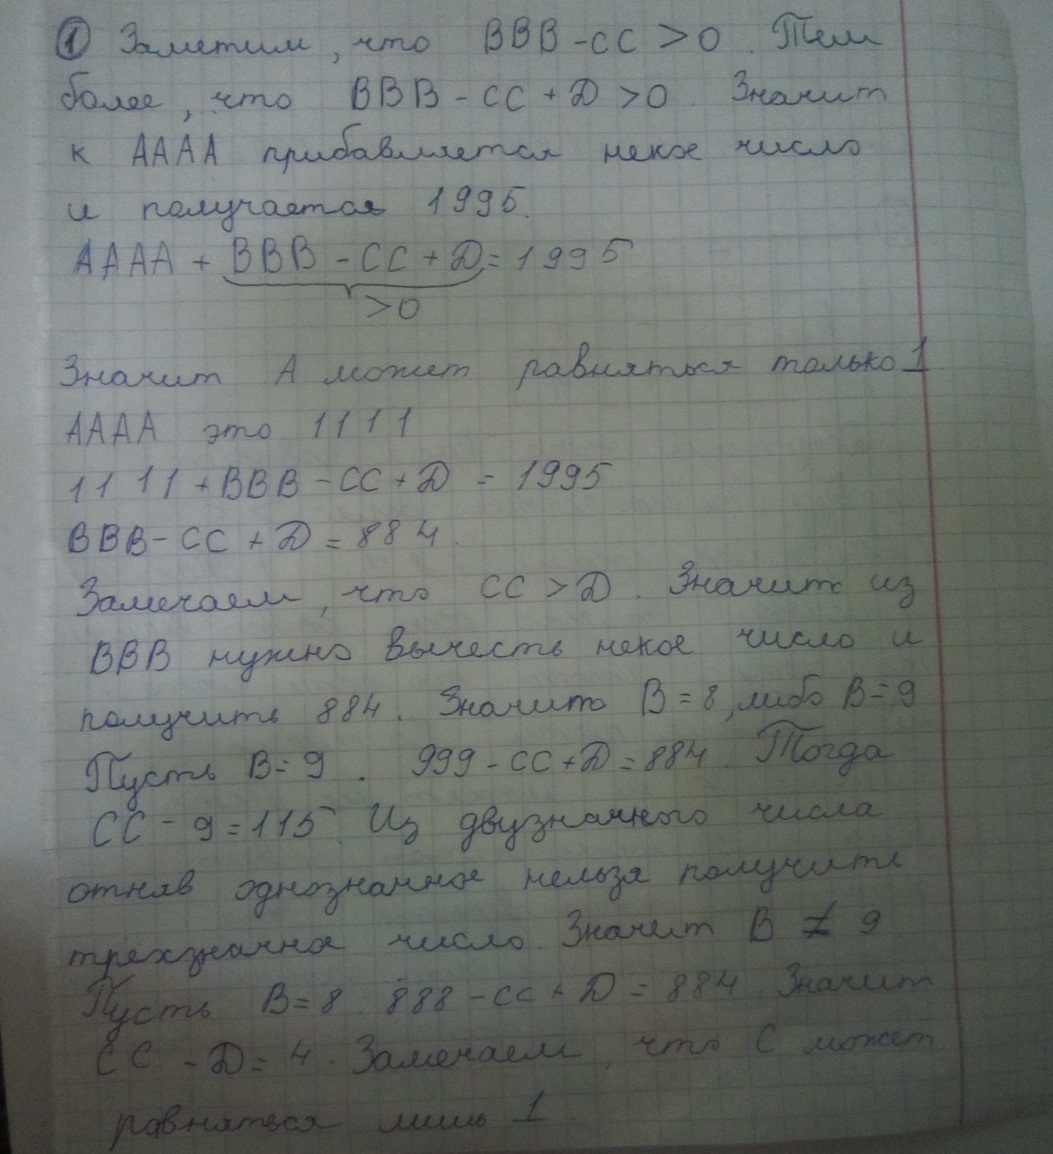 ① Заметим, что BBB - CC > 0. Тем
более, что BBB - CC + Д > 0 Значит
к АААА прибавляется некое число
и получается 1995.
АААА + BBB - CC + Д = 1995
>0
Значит А может равняться только 1
АААА это 1111
1111 + BBB - CC + Д = 1995
BBB - CC + Д = 884.
Замечаем, что CC > Д. Значит из
BBB нужно вычесть некое число и
получить 884. Значит B = 8, либо B = 9
Пусть B = 9. 999 - CC + Д = 884. Тогда
CC - 9 = 115. Из двузначного числа
отняв однозначное нельзя получить
трехзначное число. Значит B ≠ 9
Пусть B = 8. 888 - CC + Д = 884. Значит
CC - Д = 4. Замечаем, что C может
равняться лишь 1